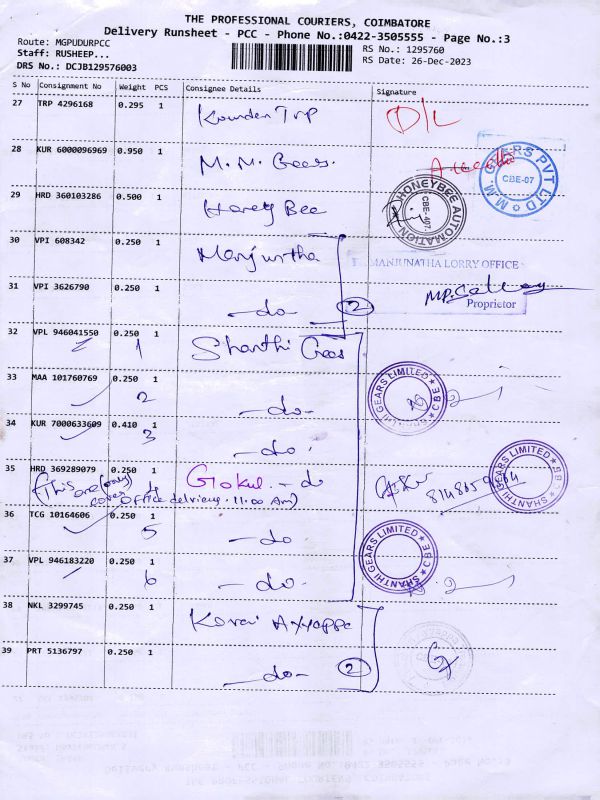 THE PROFESSIONAL COURIERS, COIMBATORE
Delivery Runsheet - PCC - Phone No.:0422-3505555 - Page No.:3
Route: MGPUDURPCC
Staff: RUSHEEP...
DRS No.: DCJB129576003
RS No.: 1295760
RS Date: 26-Dec-2023
S No Consignment No Weight PCS Consignee Details Signature
27 TRP 4296168 0.295 1 Kounden Trp D/L
28 KUR 6000096969 0.950 1 M.M. Gears.
M.M. GEARS PVT LTD
CBE-07
29 HRD 360103286 0.500 1 Honey Bee
HONEYBEE AUTOMATION
CBE-407.
30 VPI 608342 0.250 1 Manjuntha
MANJUNATHA LORRY OFFICE
31 VPI 3626790 0.250 1 -do- 2
Proprietor
32 VPL 946041550 0.250 1 Shanthi Gears
1
33 MAA 101760769 0.250 1 -do-
2
SHANTHI GEARS LIMITED CBE
34 KUR 7000633609 0.410 1 -do-
3
35 HRD 369289079 0.250 1 Gokul - do
(This one (only) 4
cover office delviery. 11.00 Am)
SHANTHI GEARS LIMITED CBE
36 TCG 10164606 0.250 1 -do
5
SHANTHI GEARS LIMITED CBE
37 VPL 946183220 0.250 1 -do-
6
38 NKL 3299745 0.250 1 Kovai Ayyappa
39 PRT 5136797 0.250 1 -do- 2